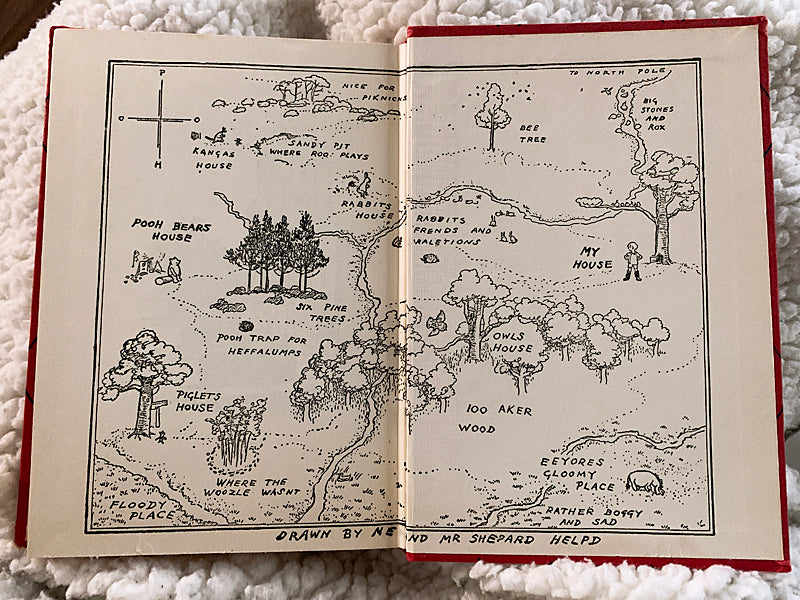 P
O
H
NICE FOR
PIKNICKS
KANGAS
HOUSE
SANDY PIT
WHERE ROO PLAYS
RABBITS
HOUSE
POOH BEARS
HOUSE
SIX PINE
TREES
POOH TRAP FOR
HEFFALUMPS
PIGLETS
HOUSE
WHERE THE
WOOZLE WASNT
FLOODY
PLACE
TO NORTH POLE
BIG
STONES
AND
ROX
BEE
TREE
RABBITS
FRENDS AND
RALETIONS
MY
HOUSE
OWLS
HOUSE
100 AKER
WOOD
EEYORES
GLOOMY
PLACE
RATHER BOGGY
AND SAD
DRAWN BY ME AND MR SHEPARD HELPD